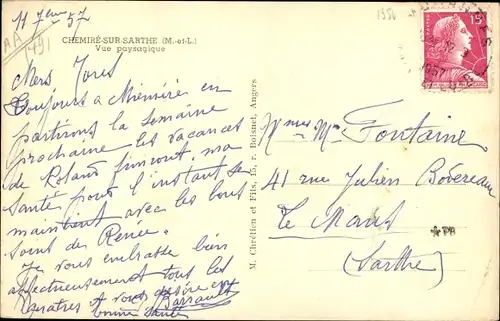 11 7en-57
1956
AA
CHEMIRÉ-SUR-SARTHE (M.-et-L.)
Vue paysagique
Mers Tous
Toujours a Miemiré en
partirons la semaine
prochaine les vacances
de Roland finiront, ma
Santé pour l'instant se
maintient avec les bons
soins de Renee.
Je vous embrasse bien
affectueusement tous les
quatres et vous désire
bonne santé
Barrault
M. Chrétien et Fils, 15, r. Boisnet, Angers
POSTES
15F
1957
Fontaine
41 rue Julien Bodereau
Le Mans
(Sarthe)